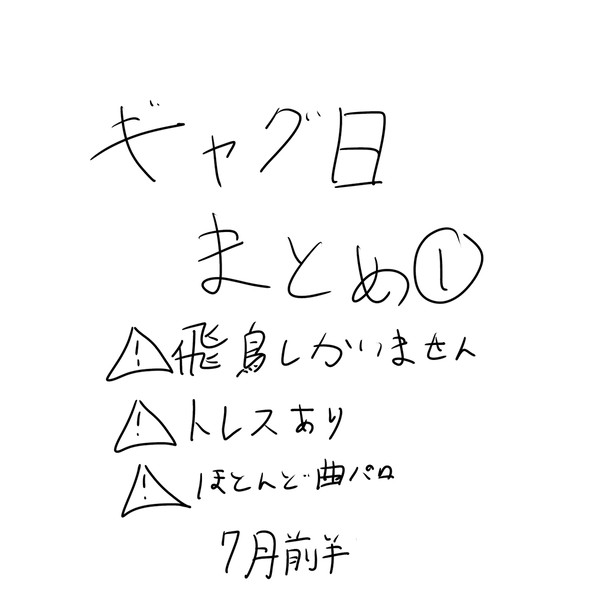 ギャグ日
まとめ①
⚠飛鳥しかいません
⚠トレスあり
⚠ほとんど曲パロ
7月前半